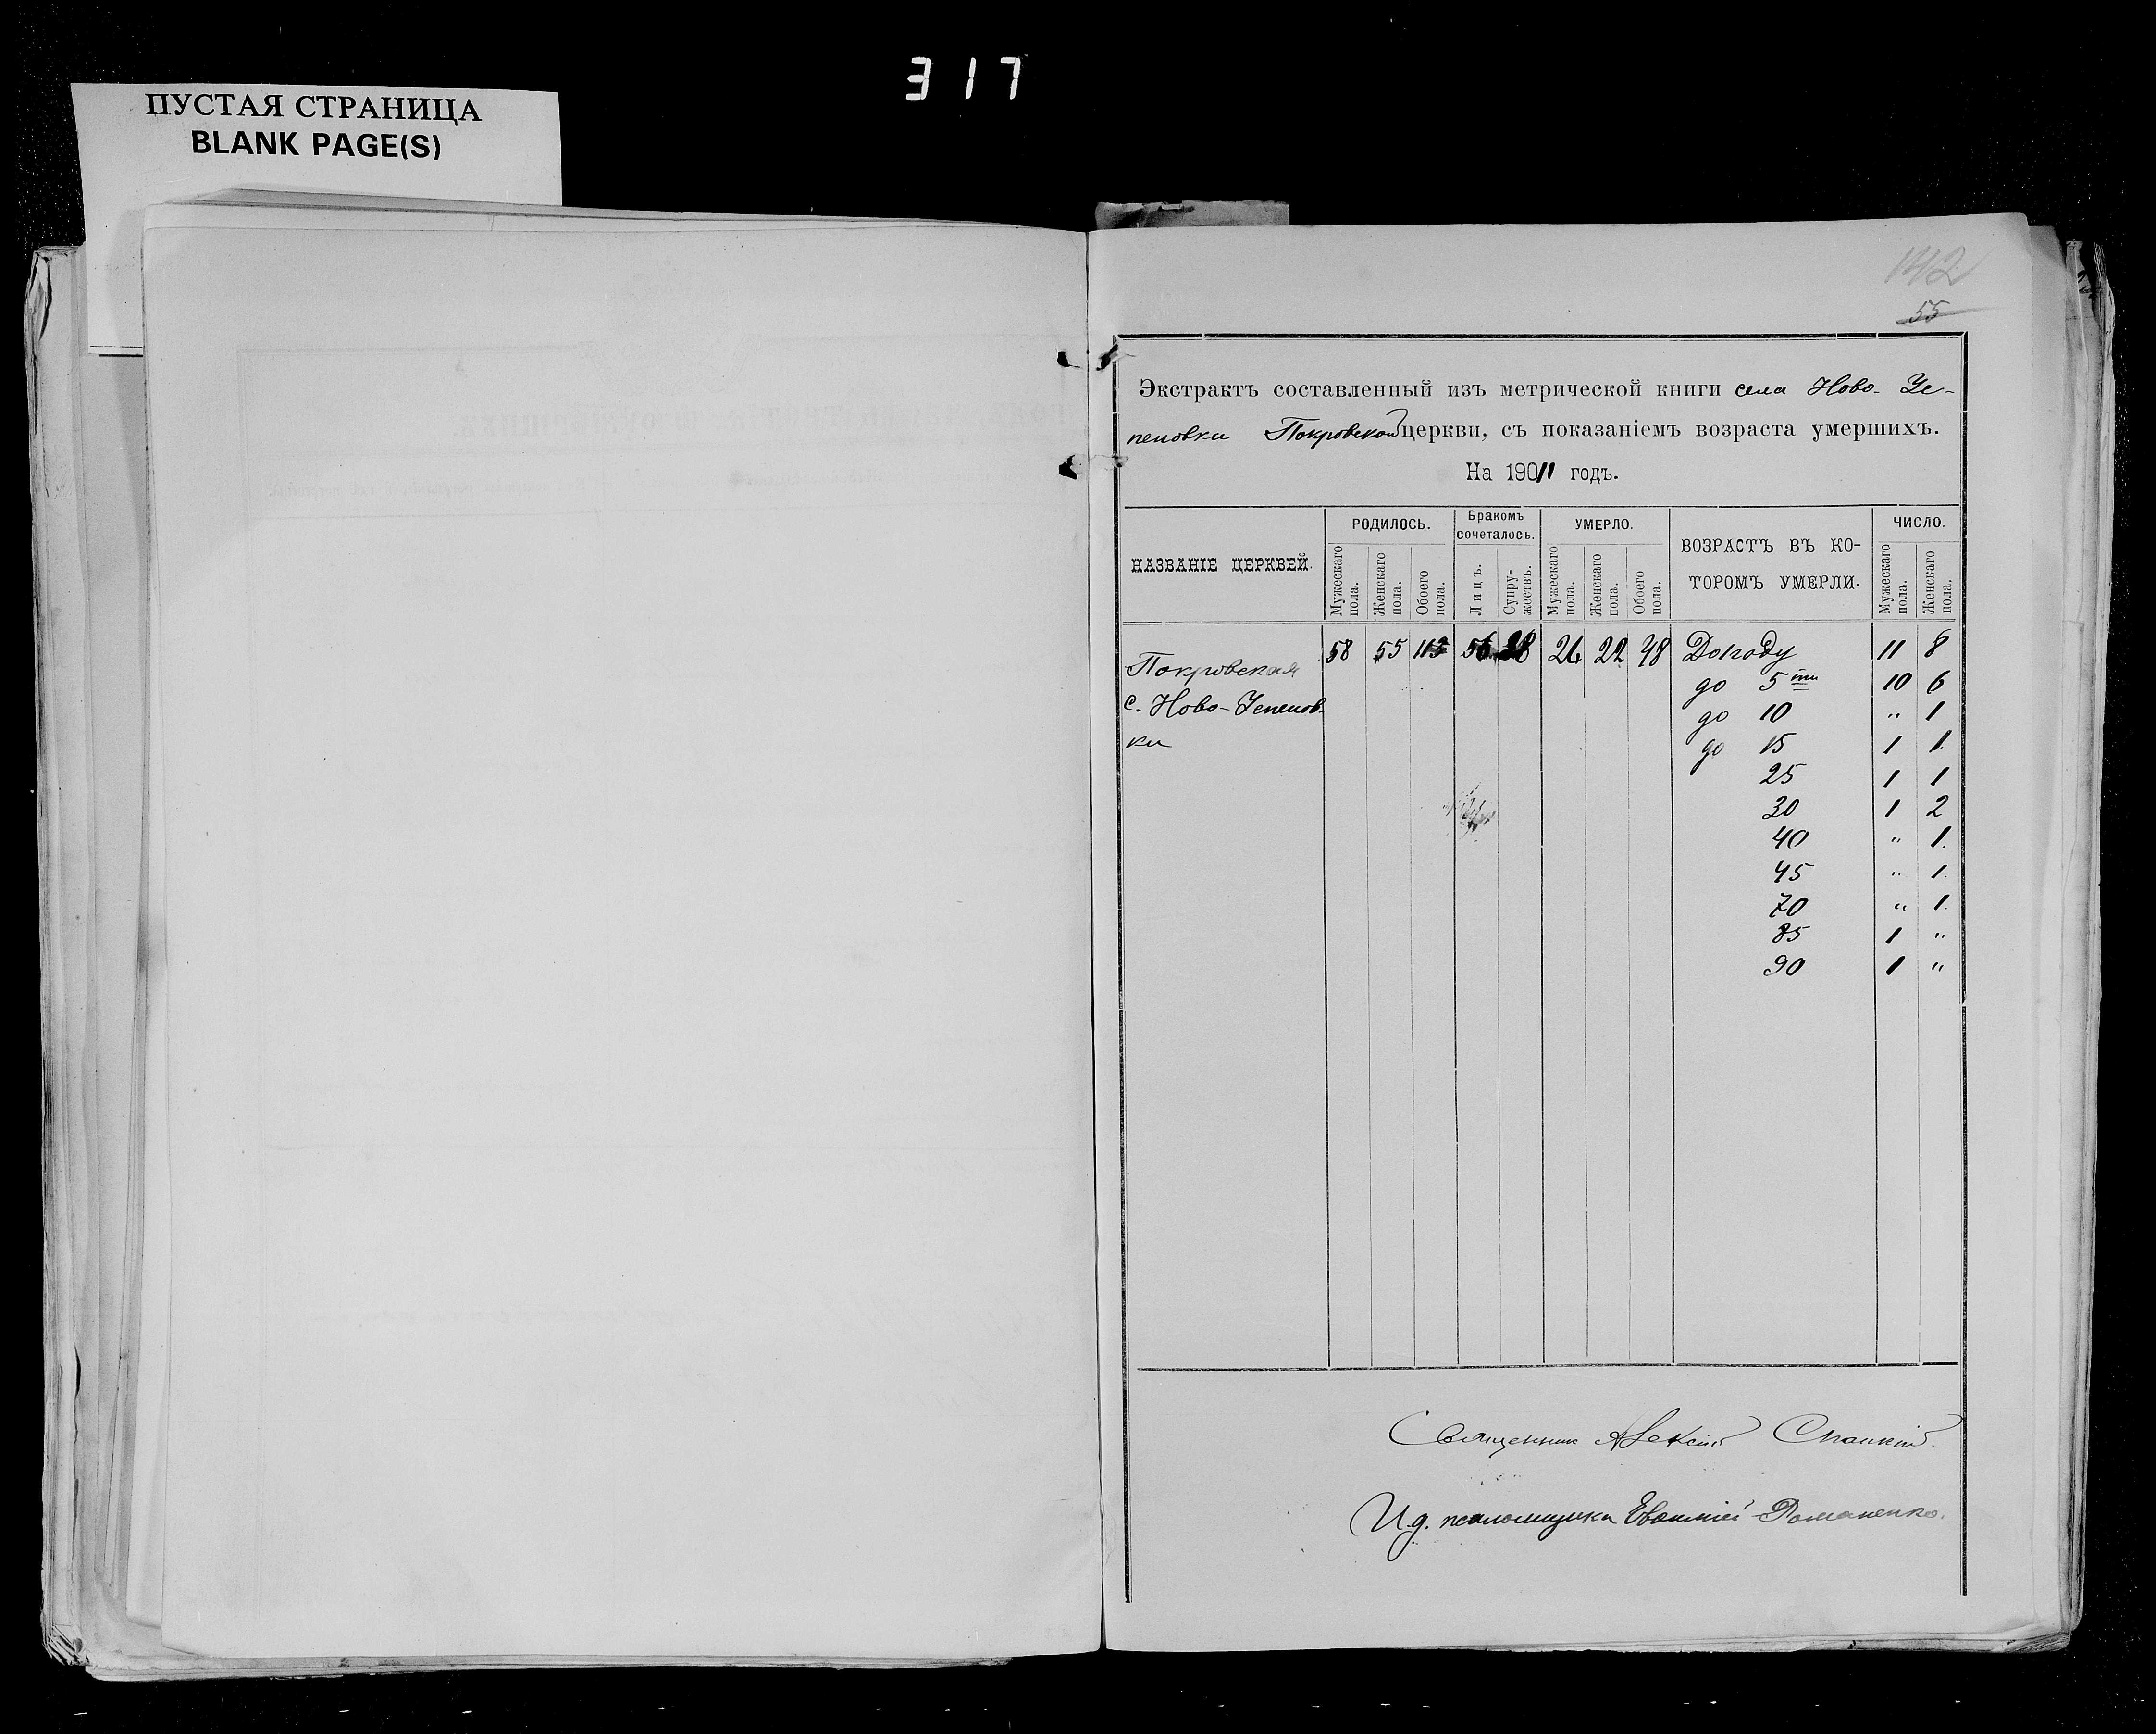 317
ПУСТАЯ СТРАНИЦА
BLANK PAGE(S)
142
55
Экстрактъ составленный изъ метрической книги села Ново-Ус-
пеновки Покровской церкви, съ показаніемъ возраста умершихъ.
На 1911 годъ.
НАЗВАНІЕ ЦЕРКВЕЙ. РОДИЛОСЬ. Бракомъ сочеталось. УМЕРЛО. ВОЗРАСТЪ ВЪ КО-ТОРОМЪ УМЕРЛИ. ЧИСЛО.
Мужескаго пола. Женскаго пола. Обоего пола. Лицъ. Супру-жествъ. Мужескаго пола. Женскаго пола. Обоего пола. Мужескаго пола. Женскаго пола.
Покровская 58 55 113 56 28 26 22 48 До году 11 8
с. Ново-Успенов- до 5ти 10 6
ки до 10 " 1
до 15 1 1.
25 1 1
30 1 2
40 " 1.
45 " 1.
70 " 1.
85 1 "
90 1 "
Священник Алексій
И. д. псаломщика Евфимій Романенко.